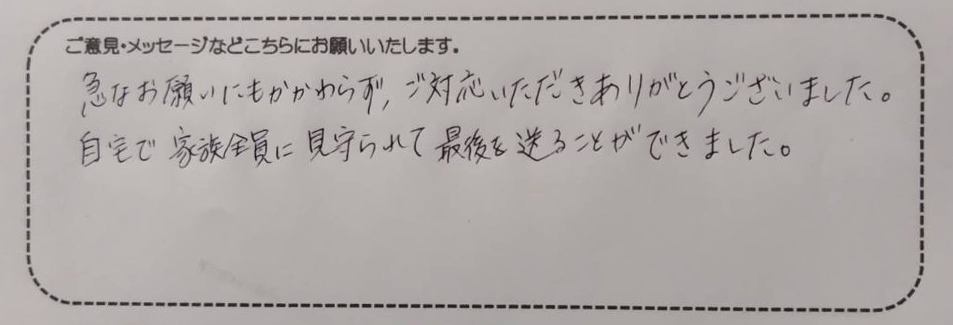 ご意見・メッセージなどこちらにお願いいたします。
急なお願いにもかかわらず,ご対応いただきありがとうございました。
自宅で家族全員に見守られて最後を送ることができました。